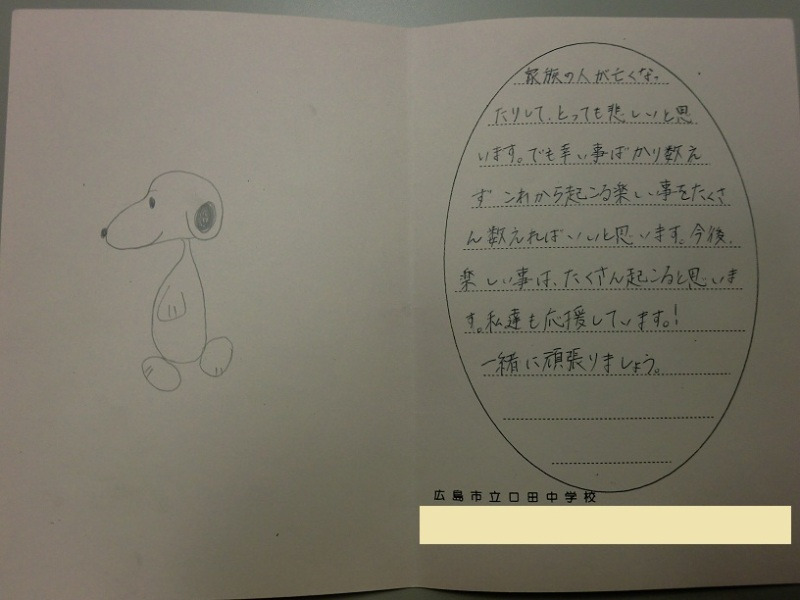 家族の人が亡くなっ
たりして、とっても悲しいと思
います。でも辛い事ばかり数え
ず これから起こる楽しい事をたくさ
ん数えればいいと思います。今後、
楽しい事は、たくさん起こると思いま
す。私達も応援しています。!
一緒に頑張りましょう。
広島市立口田中学校